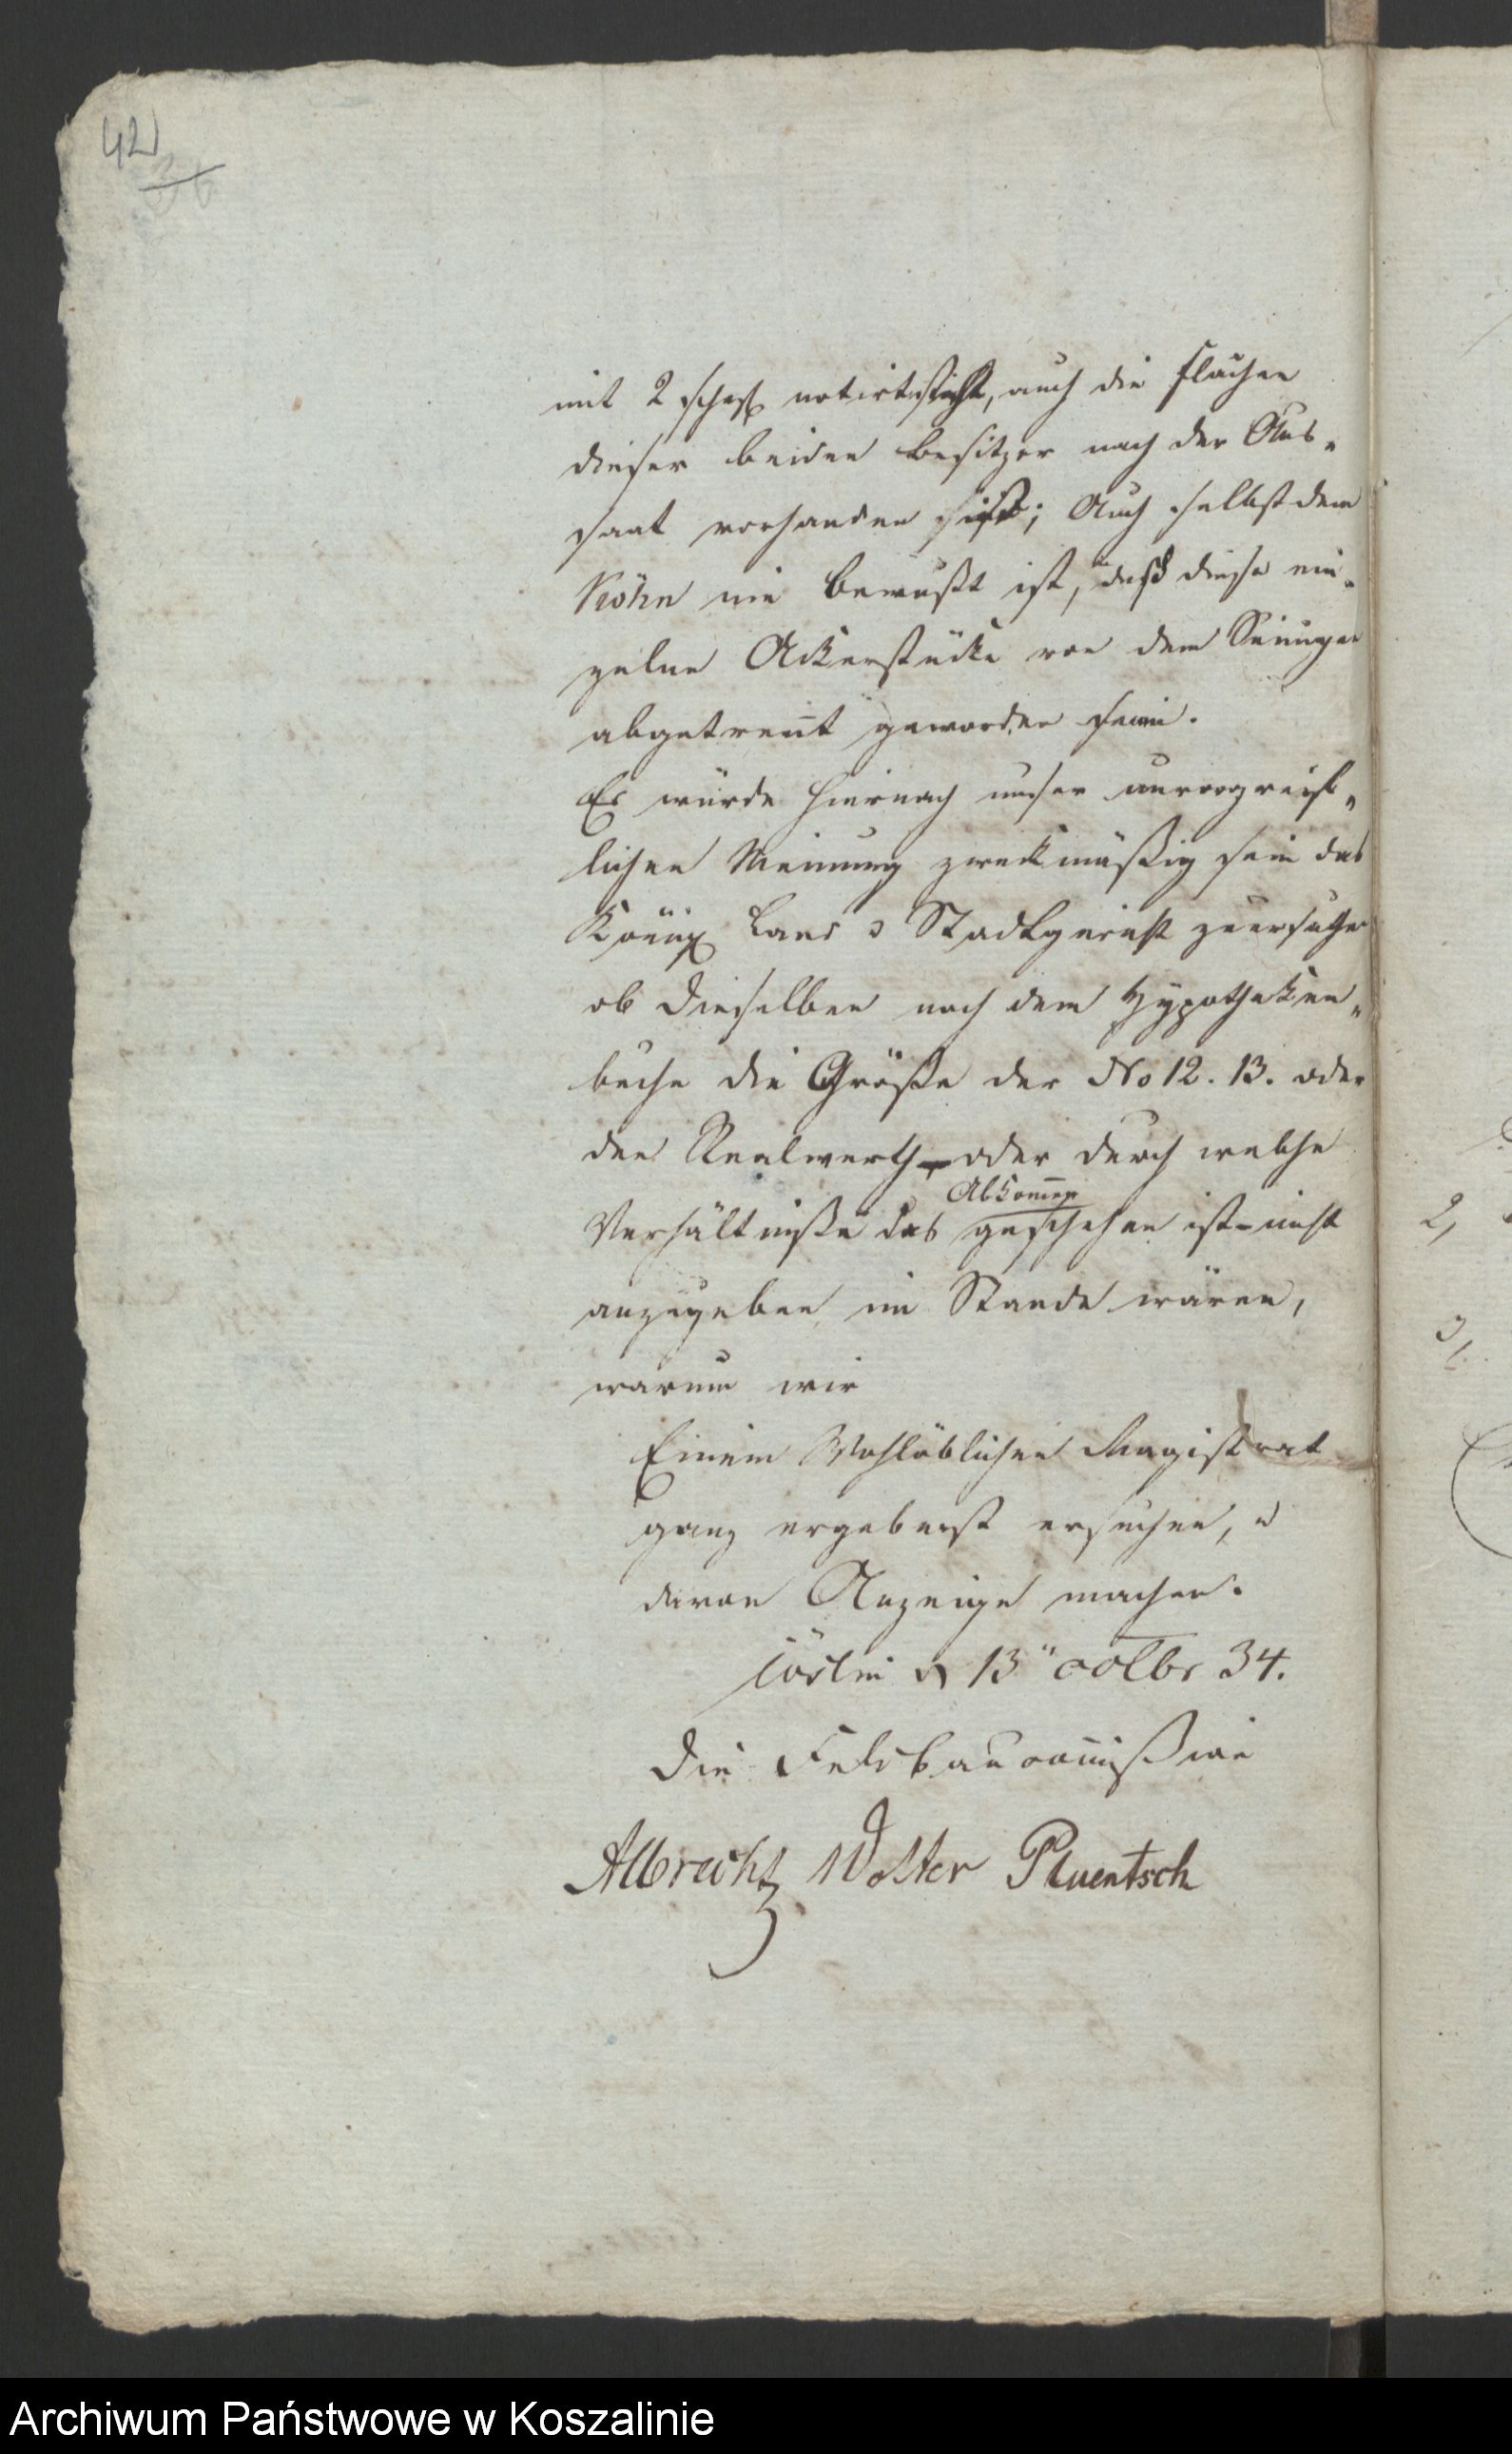 42
mit 2 Scheff notirt steht, auch die Flächen
dieser beiden Besitzer nach der Aus-
saat vorhanden ist; Auch selbst dem
Köhn nie bewußt ist, daß diese ein-
zelne Ackerstücke von dem Seinigen
abgetrennt geworden sein.
Es würde hiernach unser unvorgreif-
lichen Meinung zweckmäßig sein das
Königl Land u Stadtgericht zu ersuchen
ob dieselben nach dem Hypotheken-
buche die Größe der No 12. 13. oder
den Realwerth oder durch welche
Verhältniße das Abkommen geschehen ist - nicht
anzugeben im Stande wären,
warum wir
Einem Wohllöblichen Magistrat
ganz ergebenst ersuchen, u
davon Anzeige machen.
Cöslin d 13" Octbr 34.
Die Feldbaucommißion
Albrecht Wolter Pluentsch
2,
3,
Archiwum Państwowe w Koszalinie